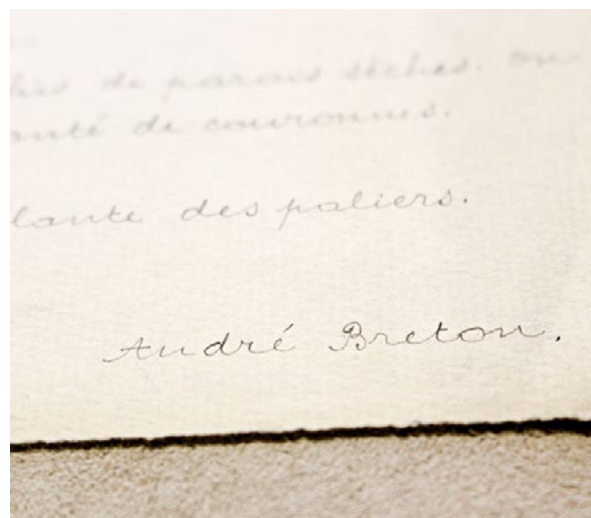 de parois sèches. On
de couronnes.
lante des paliers.
André Breton.